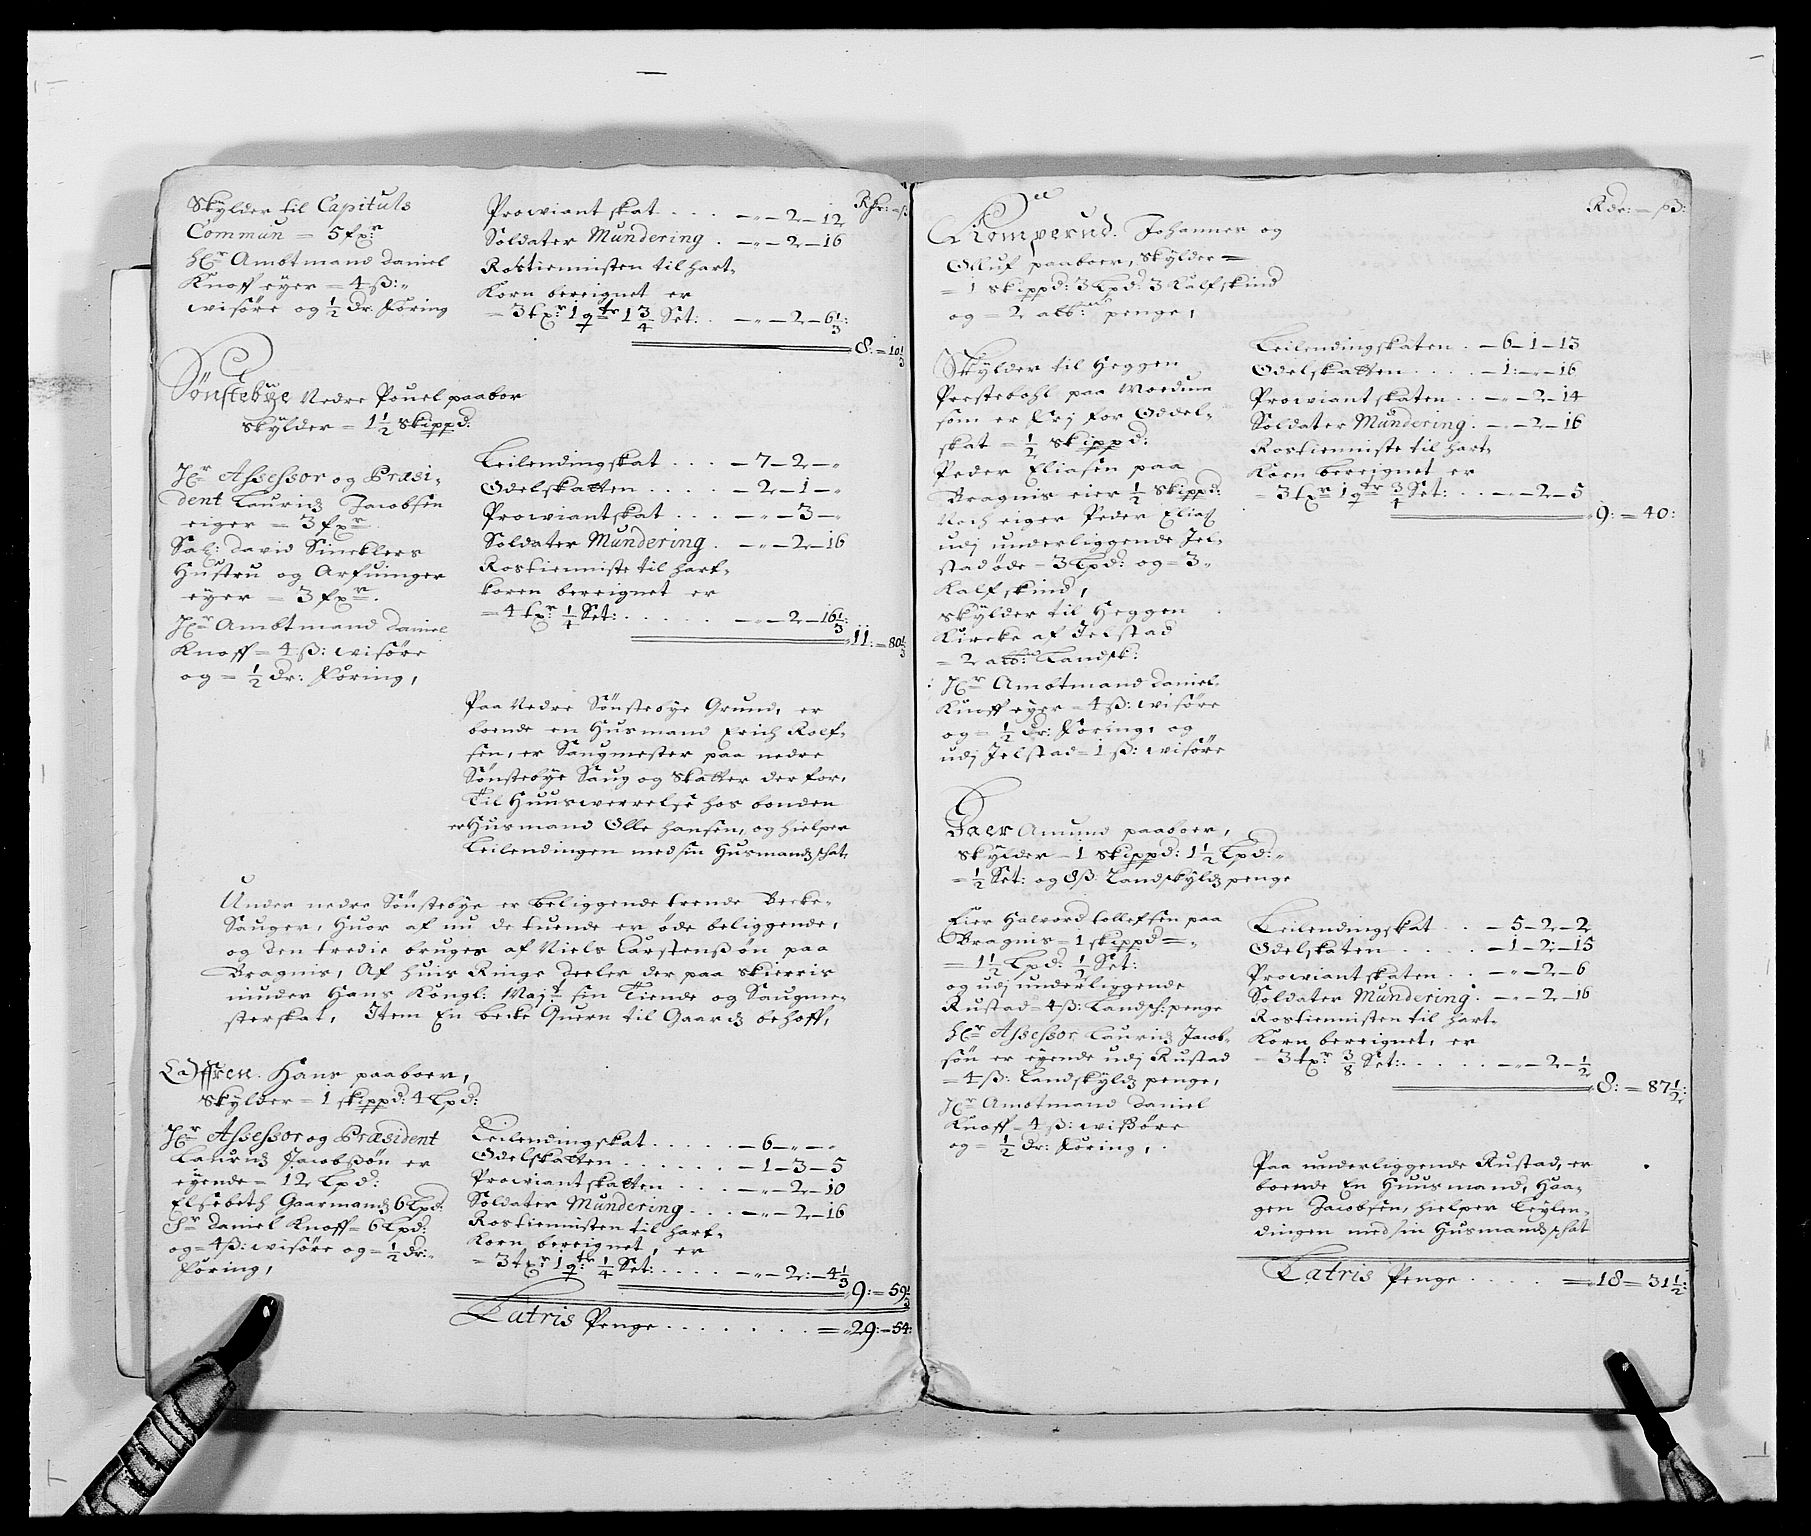 Skylder til Capituls
Commun = 5 fxr.
Hr Ambtmand Daniel
Knoff eyer = 4 ß:
wisöre og ½ dr. Föring
Rdr: ß
Prowiant skat . . . . — „ — 2 — 12
Soldater Mundering . — „ — 2 — 16
Rostiennisten til hart-
Korn bereignet er
= 3 txr: 1 qtr 1¾ Set: . — „ — 2 — 6⅓:
8: = 10⅓
Sönstebye Nedre Pouel paaboer
Skylder = 1½ Skippd:
Hr Assessor og Præsi-
dent Lauridz Jacobsen
eiger = 3 fxr.
Sal: David Sincklers
Hustru og Arfuinger
eyer = 3 fxr.
Hr Ambtmand Daniel
Knoff = 4 ß: wisöre
og = ½ dr: Föring,
Leilendingskat . . . — 7 — 2 — „
Odelskatten . . . . — 2 — 1 — „
Prowiantskat . . . — „ — 3 — „
Soldater Mundering . — „ — 2 — 16
Rostienniste til hart-
koren bereignet er
= 4 txr ¼ Set: . . . . . — „ — 2 — 16⅓:
11: = 80⅓
Paa Nedre Sönstebye Grund, er
boende en Husmand Erich Rolf-
sen, er Saugmester paa nedre
Sönstebye Saug og Skatter der for,
Til Huuswerrelse hos bonden
er Husmand Olle Hansen, og hielper
Leilendingen med sin Husmandz schat
Under nedre Sönstebye er beliggende trende Becke-
Sauger, Huor af nu de tuende er öde beliggende,
og den tredie bruges af Niels Carstensßön paa
Bragnis, Af huis Ringe deeler der paa Skierris
niuder Hans Kongl: Majt sin Tiende og Saugme-
sterskat, Item En becke Quern til Gaardz behoff,
Laffren. Hans paaboer,
Skylder = 1 skippd: 4 Lpd:
Hr Assessor og Præsident
Lauridz Jacobßön er
eyende = 12 Lpd:
Elsebeth Gaarmandz 6 Lpd:
Hr Daniel Knoff = 6 Lpd:
og = 4 ß: wisöre og = ½ dr:
Föring,
Leilendingskat . . . . . — 6 — „ — „
Odelskatten . . . . . . — 1 — 3 — 5
Prowiantskatten . . . — „ — 2 — 10
Soldater Mundering . . . — „ — 2 — 16
Rostiennisten til hart-
Korn bereignet, er
= 3 txr 1 qtr: ¼ Set: . . . . — „ — 2: — 4⅓
9: = 59⅓
Latris Penge . . . . . . . = „ 29: = 54:
Rdr: = ß:
Komperud. Johannes og
Olluf paaboer, Skylder =
= 1 skippd: 3 Lpd: 3 Kalfskind
og = 2 alb: penge,
Skylder til Heggen
Prestebohl paa Moedum
som er frj for Oddel-
skat = ½ skippd:
Peder Eliasen paa
Bragnis eier ½ skippd:
Noch eiger Peder Eliaß
udj underliggende Jel-
stad öde = 3 Lpd: og = 3„
Kalfskind,
skylder til Heggen
Kircke af Jelstad
= 2 alb: Landsk:
Hr Ambtmand Daniel
Knoff eyer = 4 ß: wisöre
og = ½ dr: Foring, og
udj Jelstad = 1 ß: wisöre
Leilendingskaten . — 6 — 1 — 13
Odelskatten . . . . — 1: — „ — 16
Prowiantskaten . . — „ — 2 — 14
Soldater Mundering . — „ — 2 — 16
Rostienniste til hart-
Korn bereignet er
= 3 txr 1 qtr ¾ Set: . . — „ — 2 — 5
9: = 40:
Baer Amund paaboer,
skylder = 1 skippd: 1½ Lpd:
= ½ Set: og 8 ß. Landskyldz penge
Eier Halvord tollefsen paa
Bragnis = 1 skippd =
= 1½ Lpd: ½ Set:
og udj underliggende
Rustad = 4 ß: Landsch: penge
Hr Assessor Lauridz Jacob-
sön er eyende udj Rustad
= 4 ß: Landskyldz penge,
Hr Ambtmand Daniel
Knoff = 4 ß: wißöre
og = ½ dr: Föring,
Leilendingskat . . — 5 — 2 — 2
Odelskaten . . . . — 1 — 2 — 15
Prowiantskaten . . — „ — 2 — 6
Soldater Mundering . — „ — 2 — 16
Rostiennisten til hart-
Korn bereignet, er
= 3 txr ⅜ Set: . . . . . — „ — 2 — ½
8: = 87½:
Paa underliggende Rustad, er
boende En Huusmand, Haa-
gen Jacobsen, hielper Leylen-
dingen med sin Husmandz schat
Latris Penge . . . . = 18 = 31½: